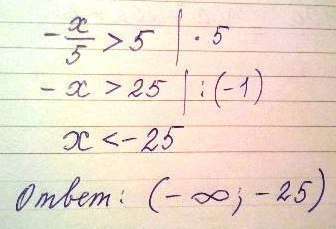 -x/5 > 5 | · 5
-x > 25 | : (-1)
x < -25
Ответ: (-∞; -25)